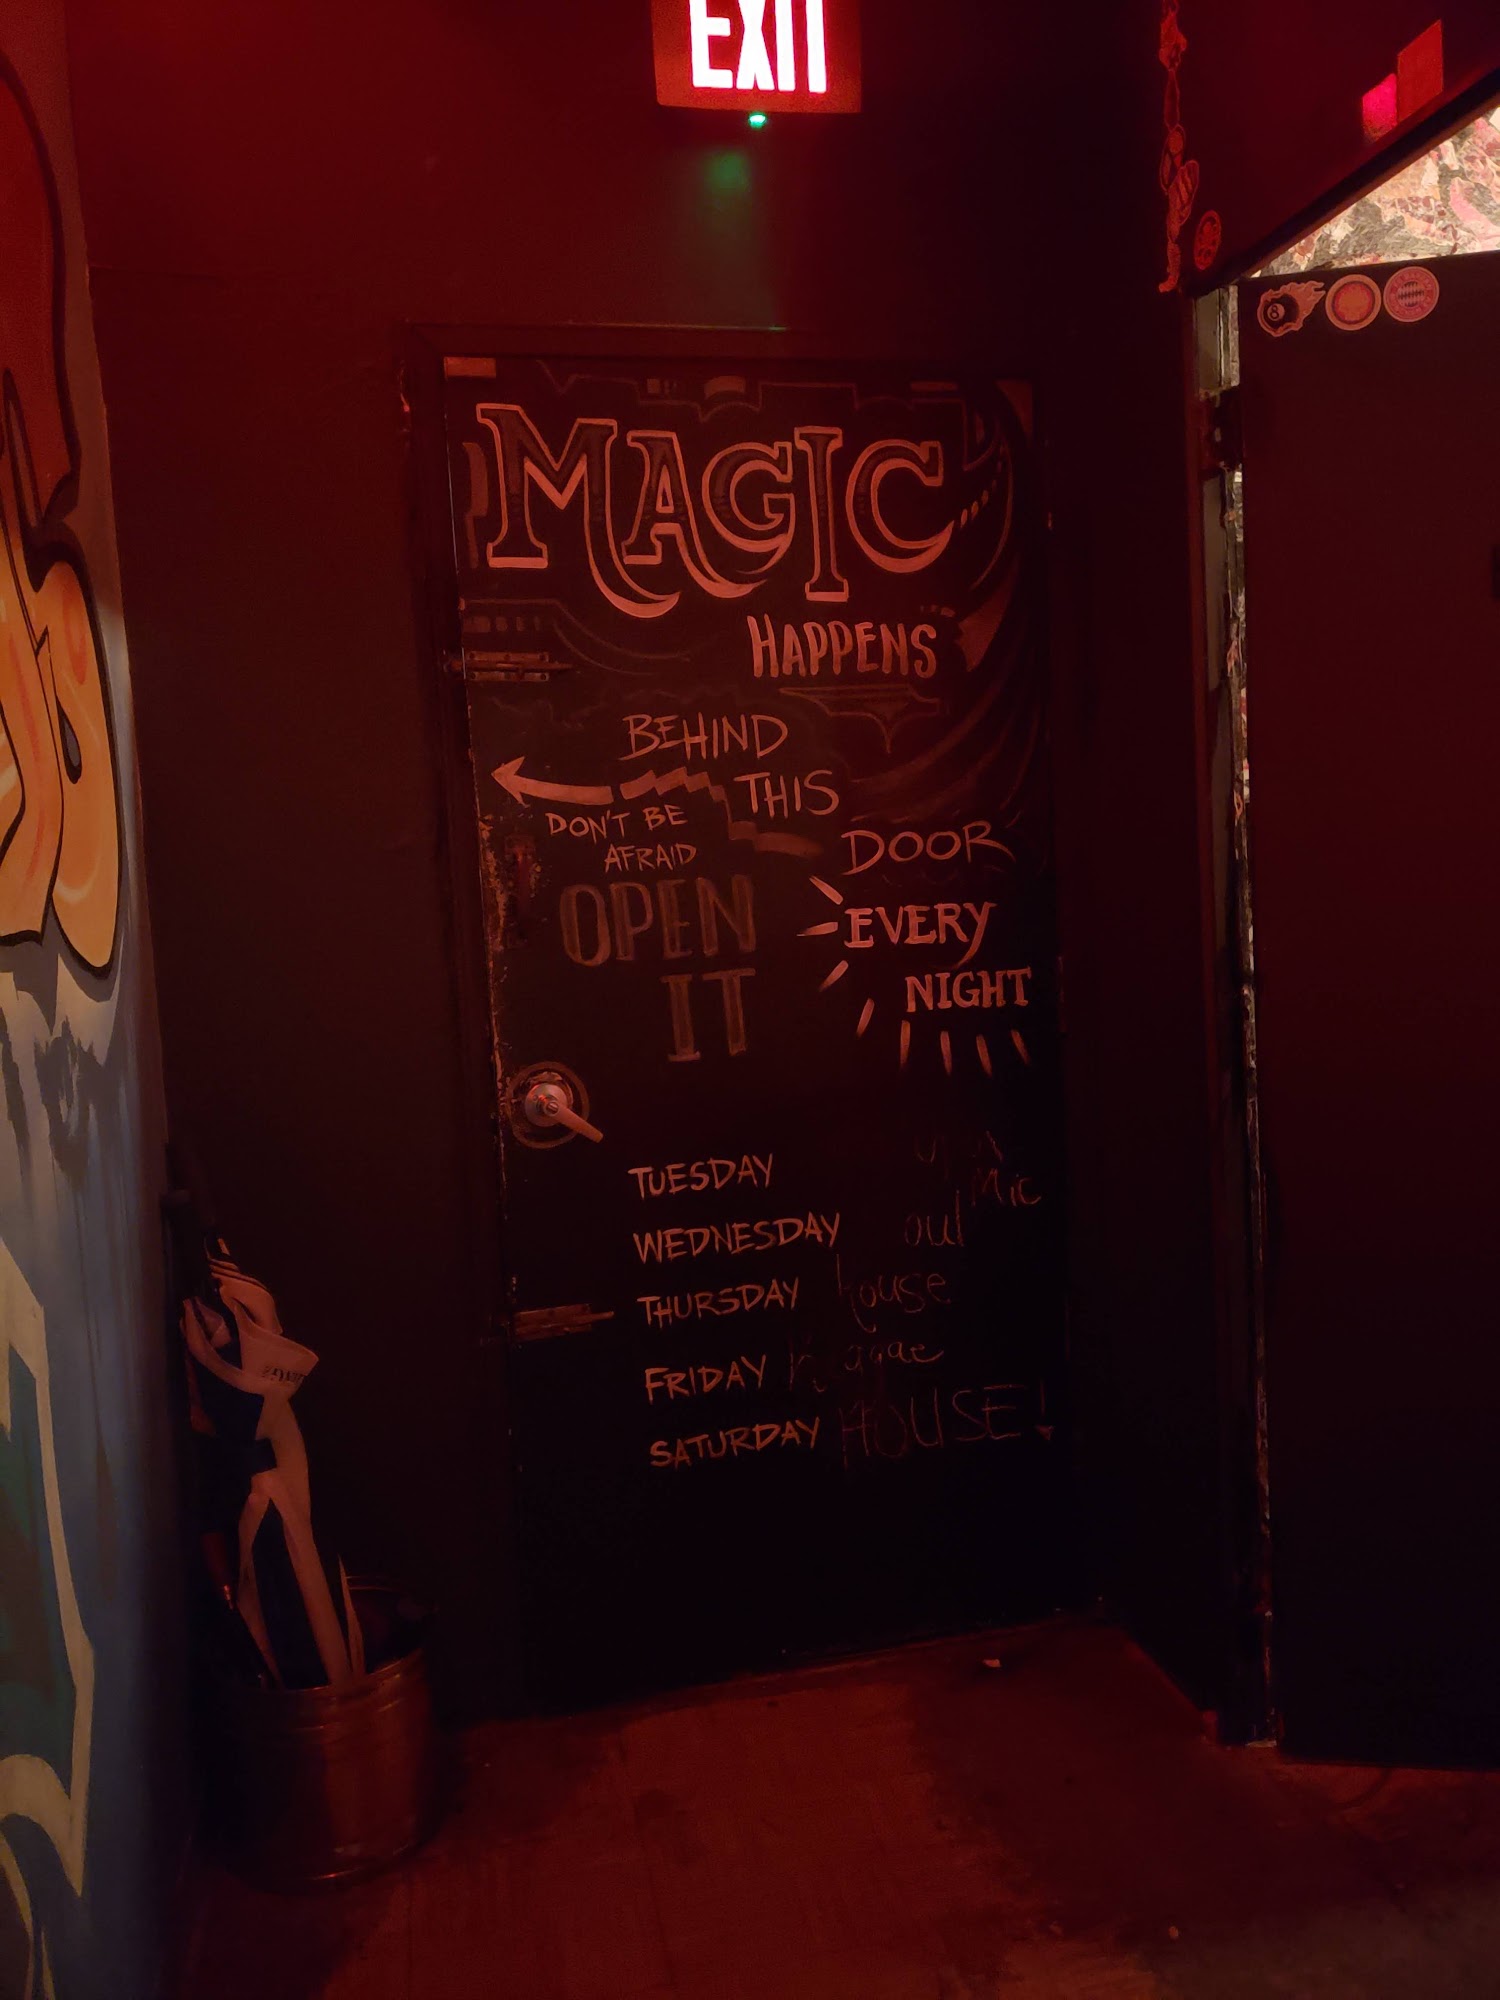 EXIT
MAGIC
HAPPENS
BEHIND
THIS
DOOR
EVERY
NIGHT
DON'T BE
AFRAID
OPEN
IT
TUESDAY Mic
WEDNESDAY
THURSDAY house
FRIDAY
SATURDAY HOUSE!